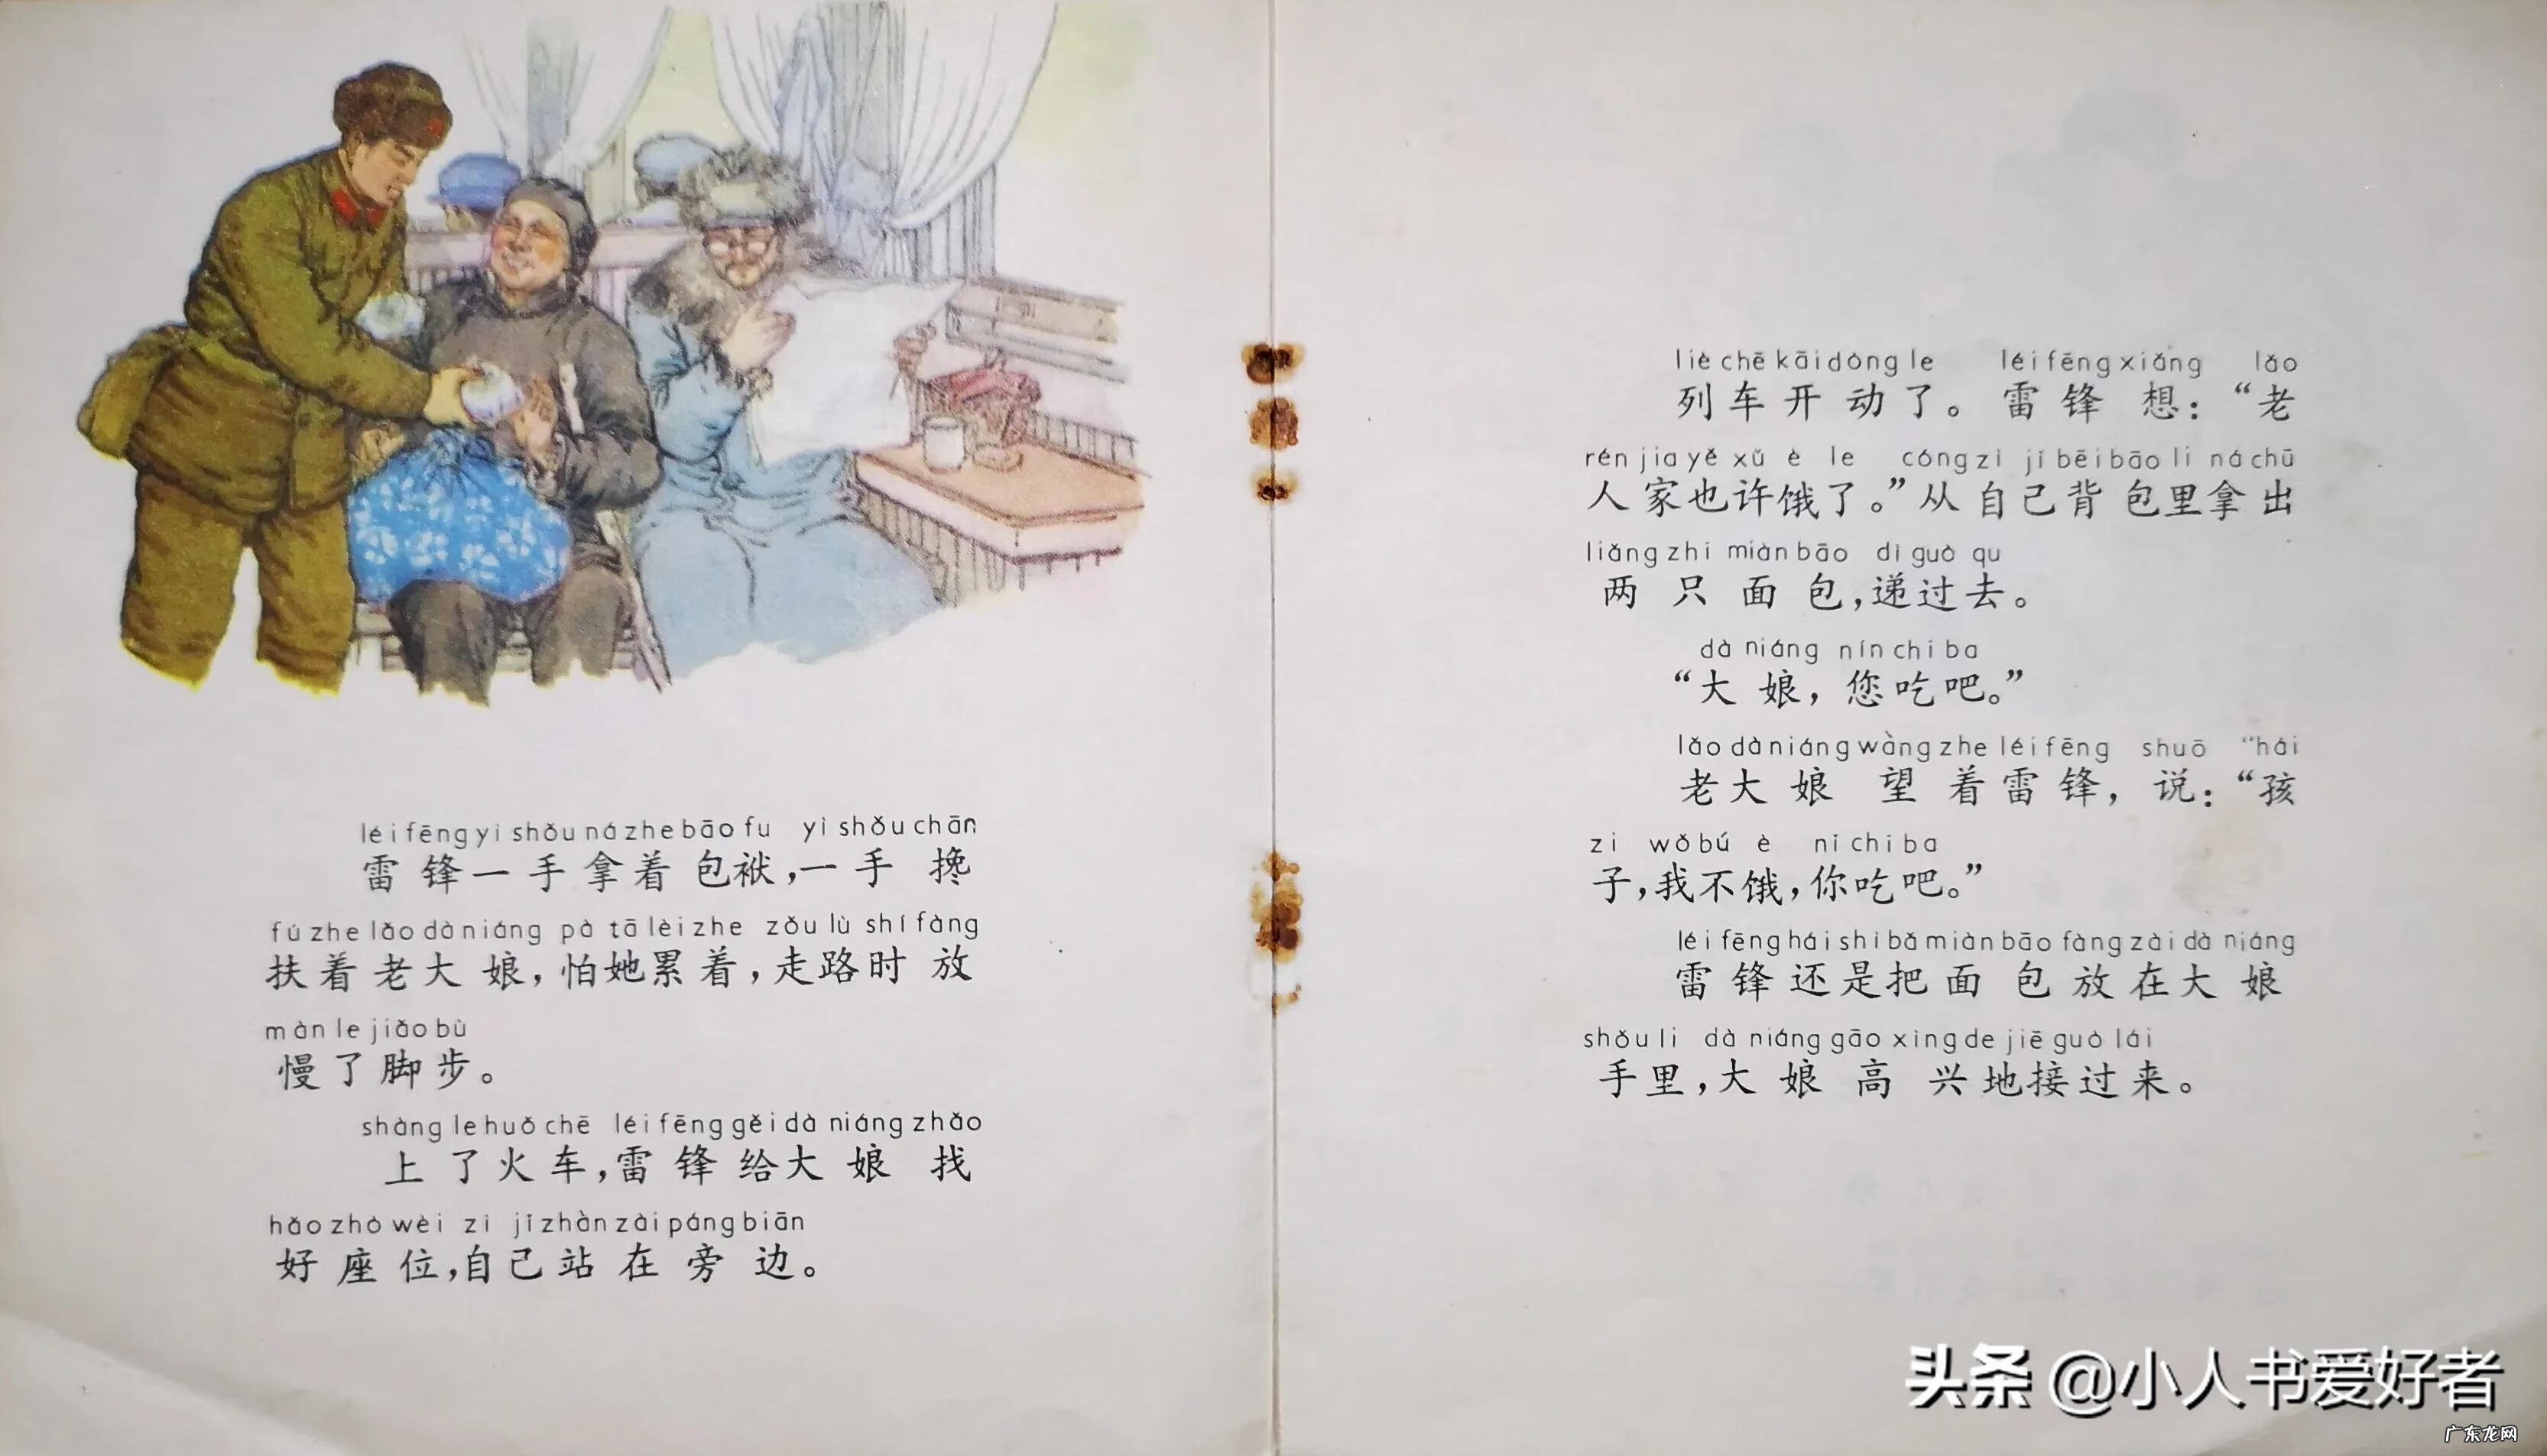 léi fēng yì shǒu ná zhe bāo fu yì shǒu chān
雷锋一手拿着包袱,一手搀
fú zhe lǎo dà niáng pà tā lèi zhe zǒu lù shí fàng
扶着老大娘,怕她累着,走路时放
màn le jiǎo bù
慢了脚步。
shàng le huǒ chē léi fēng gěi dà niáng zhǎo
上了火车,雷锋给大娘找
hǎo zhò wèi zì jǐ zhàn zài páng biān
好座位,自己站在旁边。
liè chē kāi dòng le léi fēng xiǎng lǎo
列车开动了。雷锋想:“老
rén jia yě xǔ è le cóng zì jǐ bēi bāo li ná chū
人家也许饿了。”从自己背包里拿出
liǎng zhi miàn bāo dì guò qu
两只面包,递过去。
dà niáng nín chi ba
“大娘,您吃吧。”
lǎo dà niáng wàng zhe léi fēng shuō “hái
老大娘望着雷锋,说:“孩
zi wǒ bú è nǐ chi ba
子,我不饿,你吃吧。”
léi fēng hái shi bǎ miàn bāo fàng zài dà niáng
雷锋还是把面包放在大娘
shǒu li dà niáng gāo xìng de jiē guò lái
手里,大娘高兴地接过来。
头条 @小人书爱好者
广东龙网